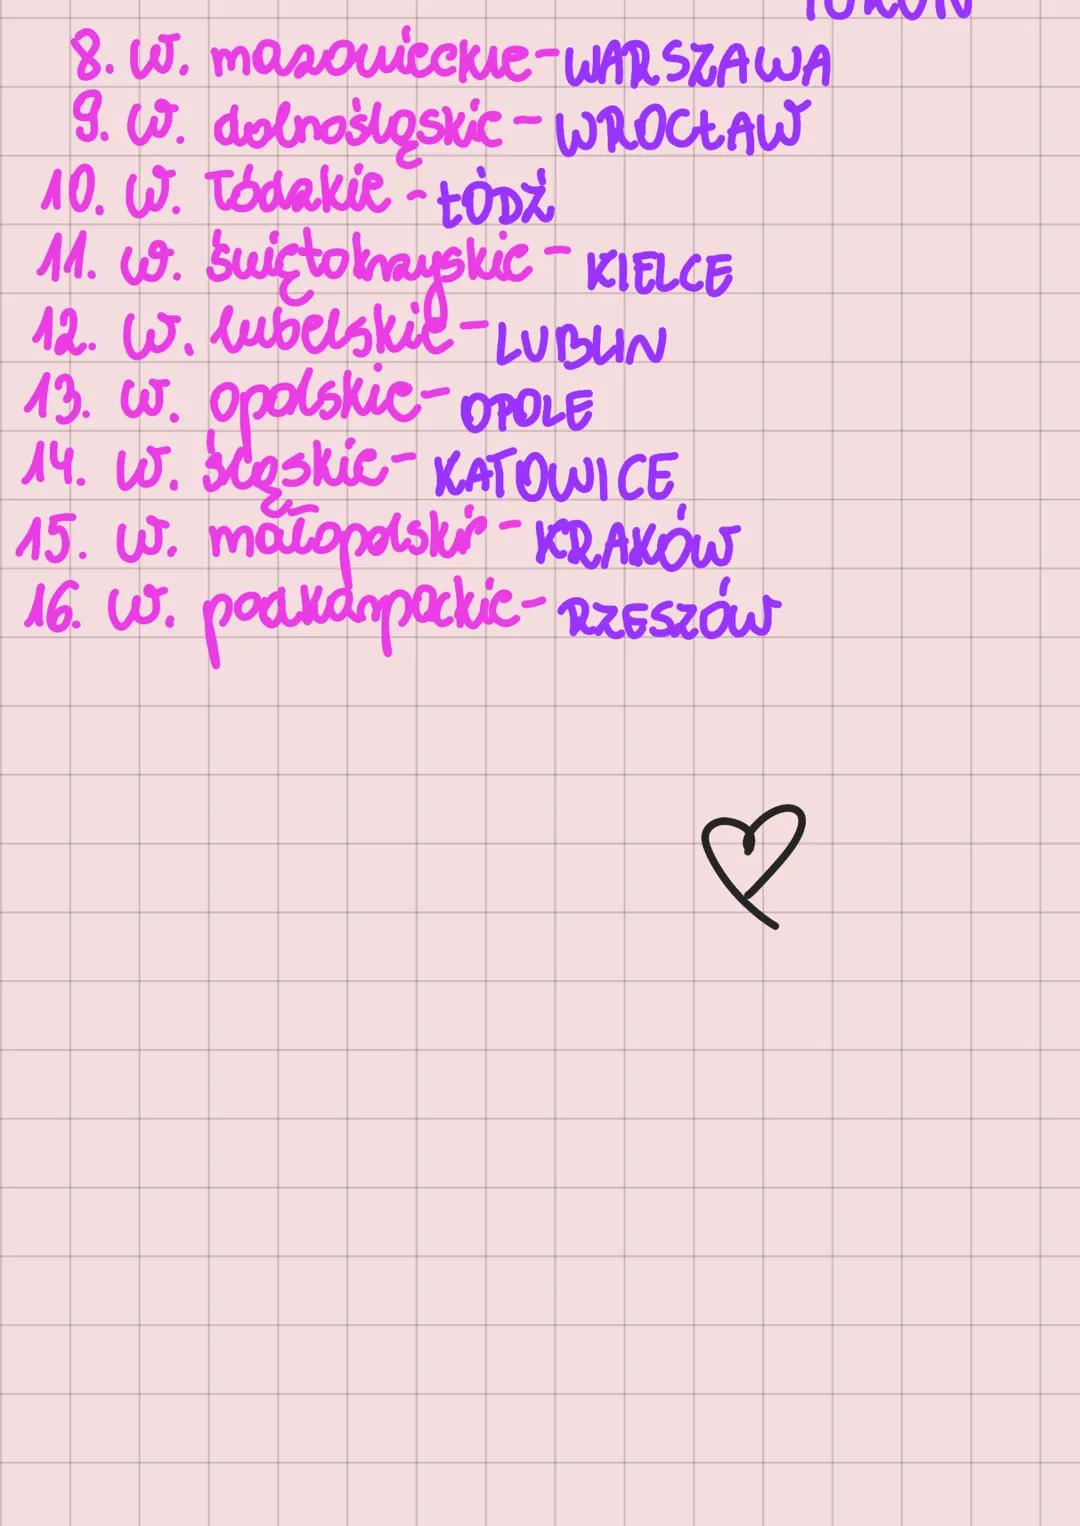 TORUŃ
8. w. mazowieckie - WARSZAWA
9. w. dolnośląskie - WROCŁAW
10. w. łódzkie - ŁÓDŹ
11. w. świętokrzyskie - KIELCE
12. w. lubelskie - LUBLIN
13. w. opolskie - OPOLE
14. w. śląskie - KATOWICE
15. w. małopolski - KRAKÓW
16. w. podkarpackie - RZESZÓW